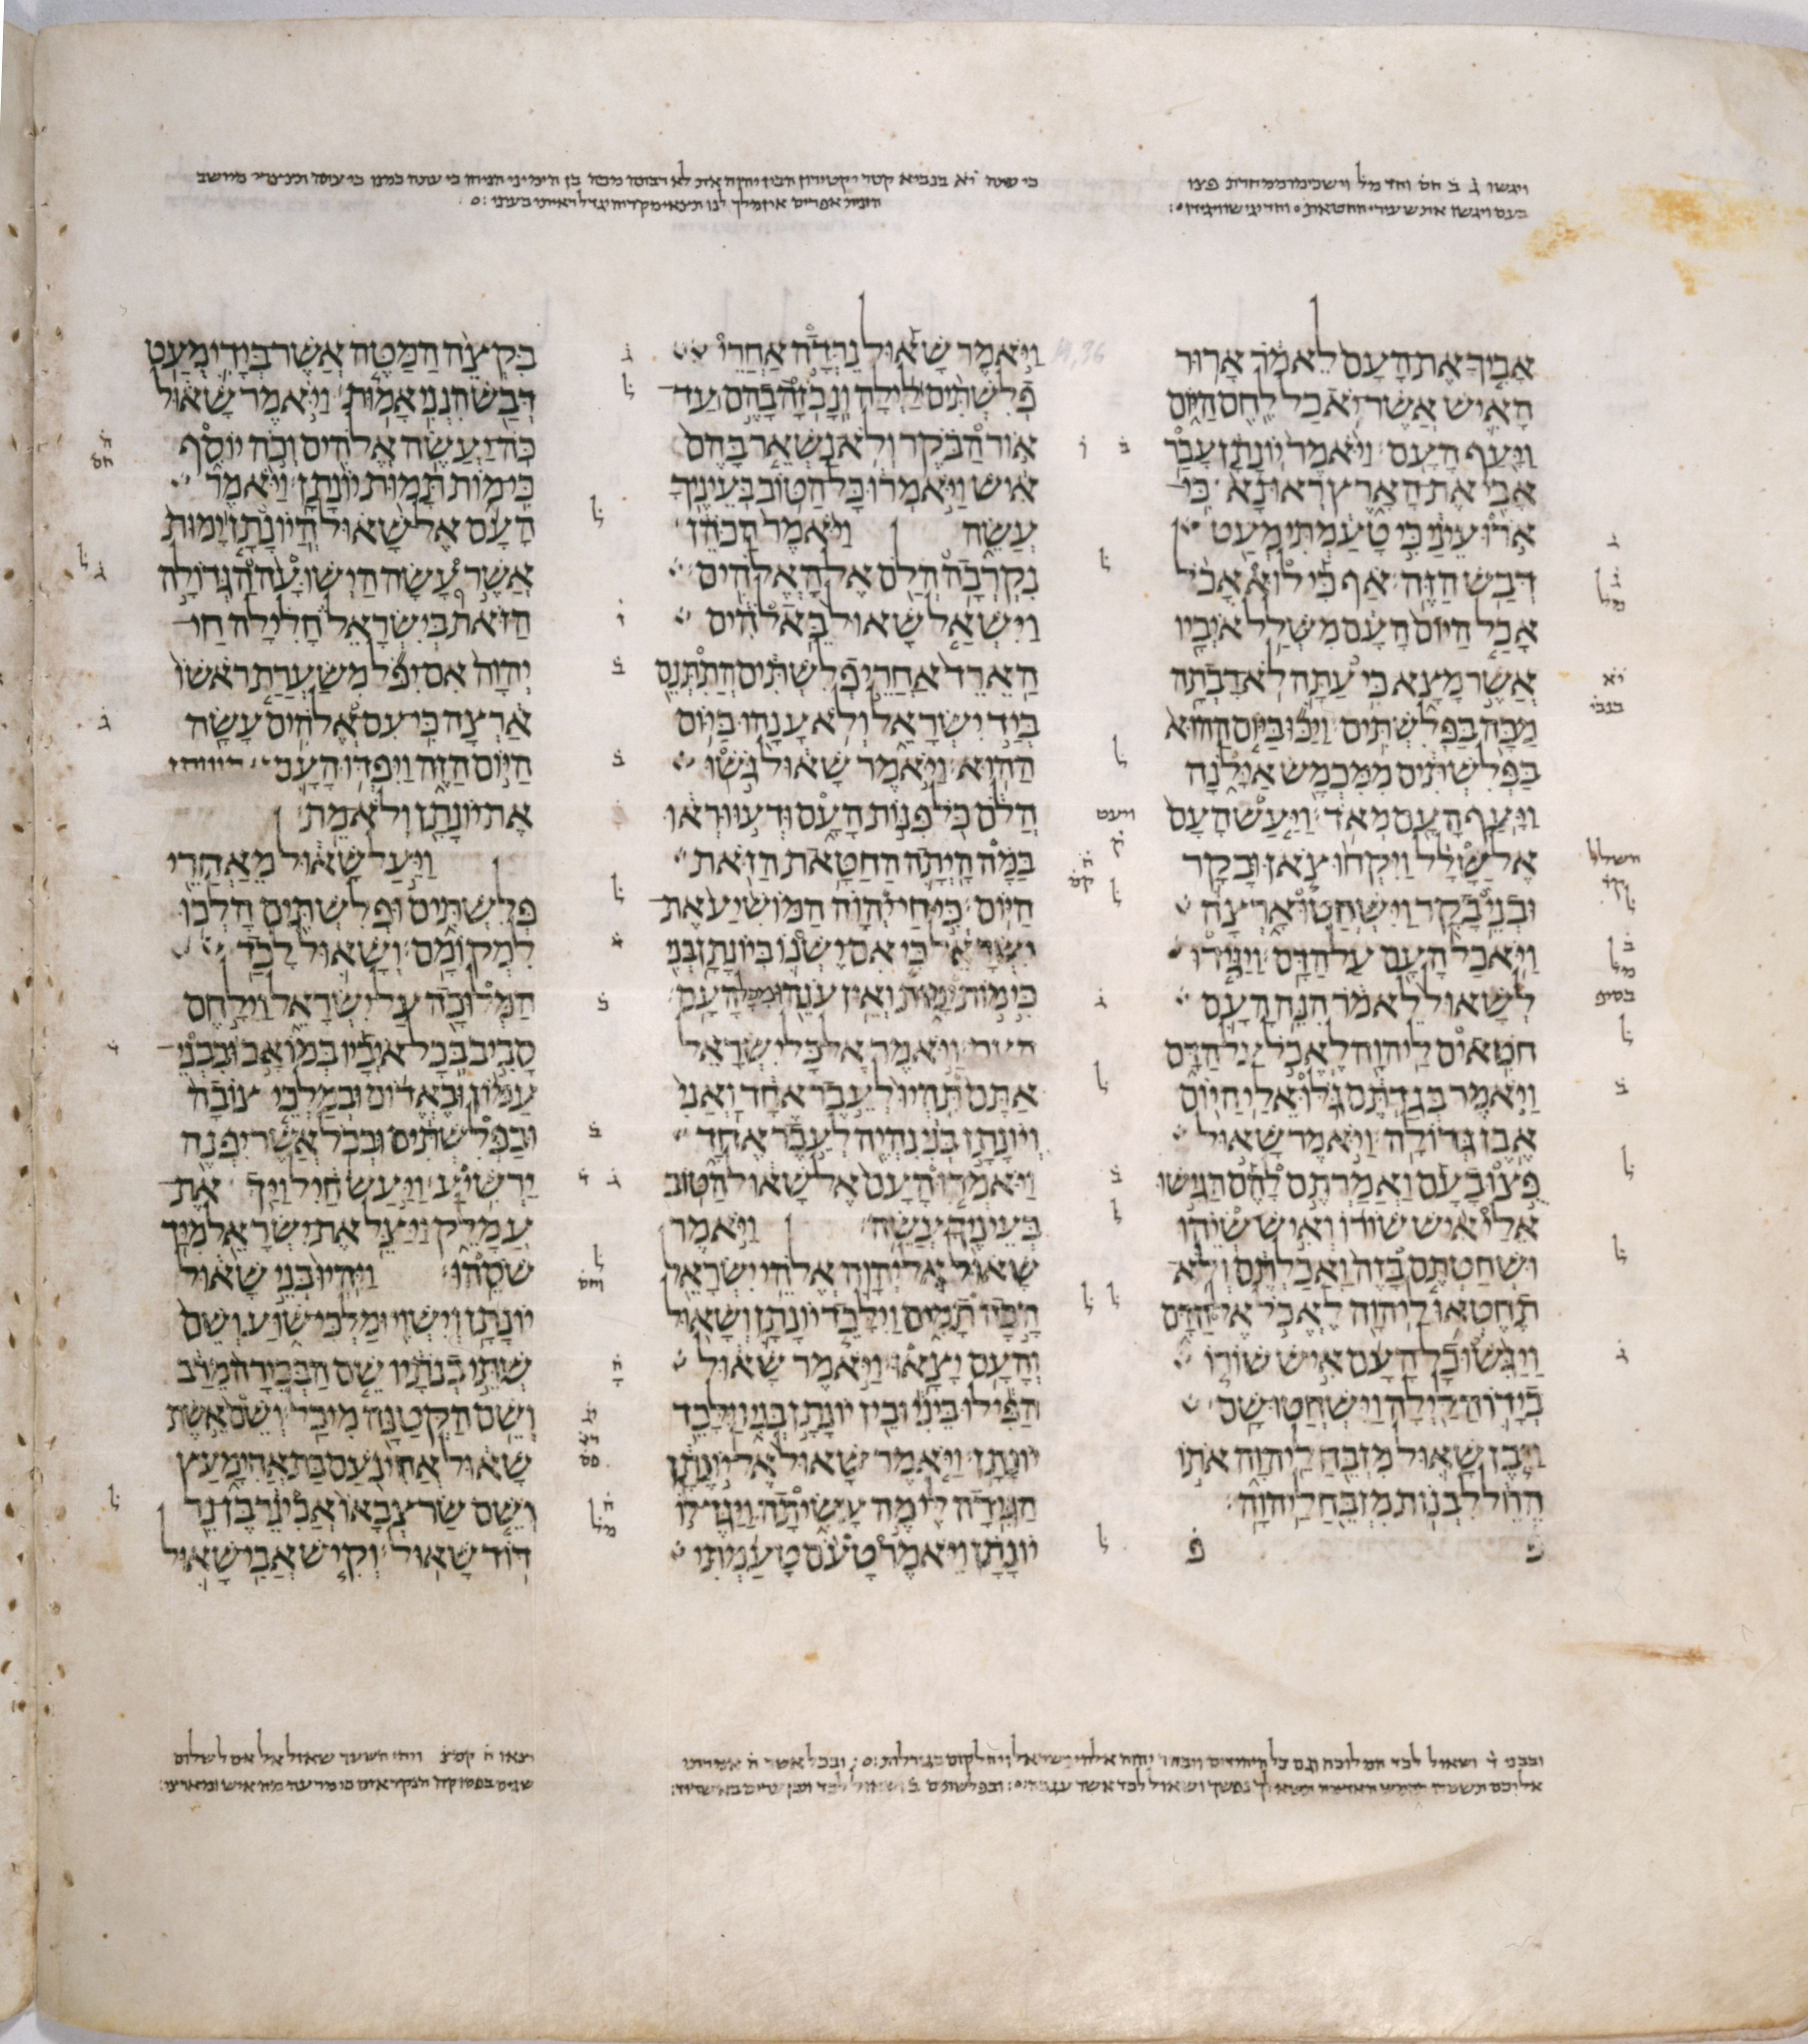 ויגשו ג ב חס וחד מל וישכימו ממחרת פצו
בעם ויגשו את שעירי החטאת וחד יגישו ויגידו
אביך את העם לאמר ארור
האיש אשר יאכל לחם היום
ויעף העם ויאמר יונתן עכר
אבי את הארץ ראו נא כי
ארו עיני כי טעמתי מעט
דבש הזה אף כי לוא אכל
אכל היום העם משלל איביו
אשר מצא כי עתה לא רבתה
מכה בפלשתים ויכו ביום ההוא
בפלשתים ממכמש אילנה
ויעף העם מאד ויעש העם
אל שלל ויקחו צאן ובקר
ובני בקר וישחטו ארצה
ויאכל העם על הדם ויגידו
לשאול לאמר הנה העם
חטאים ליהוה לאכל על הדם
ויאמר בגדתם גלו אלי היום
אבן גדולה ויאמר שאול
פצו בעם ואמרתם להם הגישו
אלי איש שורו ואיש שיהו
ושחטתם בזה ואכלתם ולא
תחטאו ליהוה לאכל אל הדם
ויגשו כל העם איש שורו
בידו הלילה וישחטו שם
ויבן שאול מזבח ליהוה אתו
החל לבנות מזבח ליהוה
פ פ
ויאמר שאול נרדה אחרי
פלשתים לילה ונבזה בהם עד
אור הבקר ולא נשאר בהם
איש ויאמרו כל הטוב בעיניך
עשה ויאמר הכהן
נקרבה הלם אל האלהים
וישאל שאול באלהים
הארד אחרי פלשתים התתנם
ביד ישראל ולא ענהו ביום
ההוא ויאמר שאול גשו
הלם כל פנות העם ודעו וראו
במה היתה החטאת הזאת
היום כי חי יהוה המושיע את
ישראל כי אם ישנו ביונתן בני
כי מות ימות ואין ענהו מכל העם
ויאמר אל כל ישראל
אתם תהיו לעבר אחד ואני
ויונתן בני נהיה לעבר אחד
ויאמרו העם אל שאול הטוב
בעיניך עשה ויאמר
שאול אל יהוה אלהי ישראל
הבה תמים וילכד יונתן ושאול
והעם יצאו ויאמר שאול
הפילו ביני ובין יונתן בני וילכד
יונתן ויאמר שאול אל יונתן
הגידה לי מה עשיתה ויגד לו
יונתן ויאמר טעם טעמתי
בקצה המטה אשר בידי מעט
דבש הנני אמות ויאמר שאול
כה יעשה אלהים וכה יוסף
כי מות תמות יונתן ויאמר
העם אל שאול היונתן ימות
אשר עשה הישועה הגדולה
הזאת בישראל חלילה חי
יהוה אם יפל משערת ראשו
ארצה כי עם אלהים עשה
היום הזה ויפדו העם
את יונתן ולא מת
ויעל שאול מאחרי
פלשתים ופלשתים הלכו
למקומם ושאול לכד
המלוכה על ישראל וילחם
סביב בכל איביו במואב ובבני
עמון ובאדום ובמלכי צובה
ובפלשתים ובכל אשר יפנה
ירשיע ויעש חיל ויך את
עמלק ויצל את ישראל מיד
שסהו ויהיו בני שאול
יונתן וישוי ומלכי שוע ושם
שתי בנתיו שם הבכירה מרב
ושם הקטנה מיכל ושם אשת
שאול אחינעם בת אחימעץ
ושם שר צבאו אבינר בן נר
דוד שאול וקיש אבי שאול